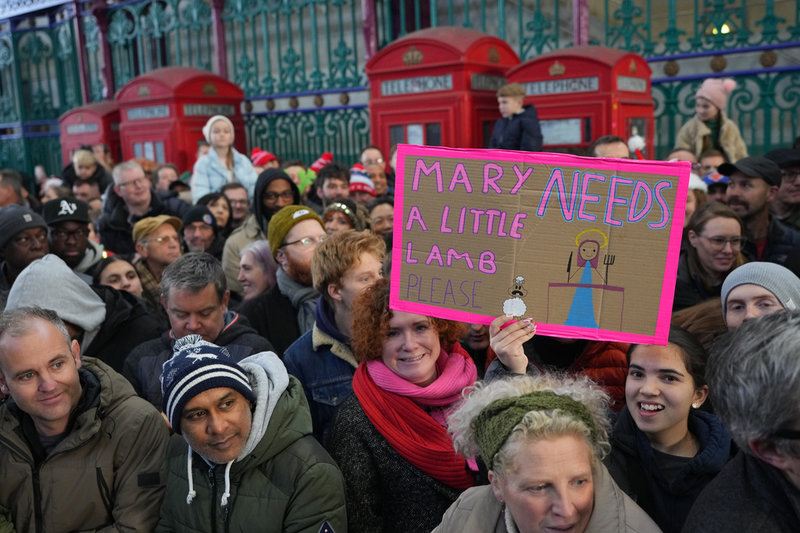 TELEPHONE
TELEPHONE
TELEPHONE
MARY NEEDS
A LITTLE
LAMB
PLEASE
A's